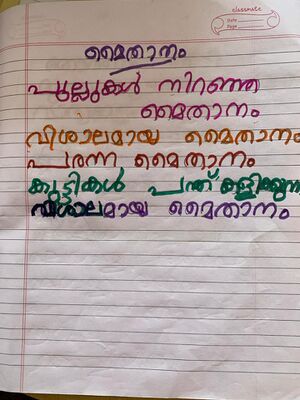 classmate
Date
Page
മൈതാനം
പുല്ലുകൾ നിറഞ്ഞ
മൈതാനം
വിശാലമായ മൈതാനം
പരന്ന മൈതാനം
കുട്ടികൾ പന്ത് കളിക്കുന്ന
വിശാലമായ മൈതാനം